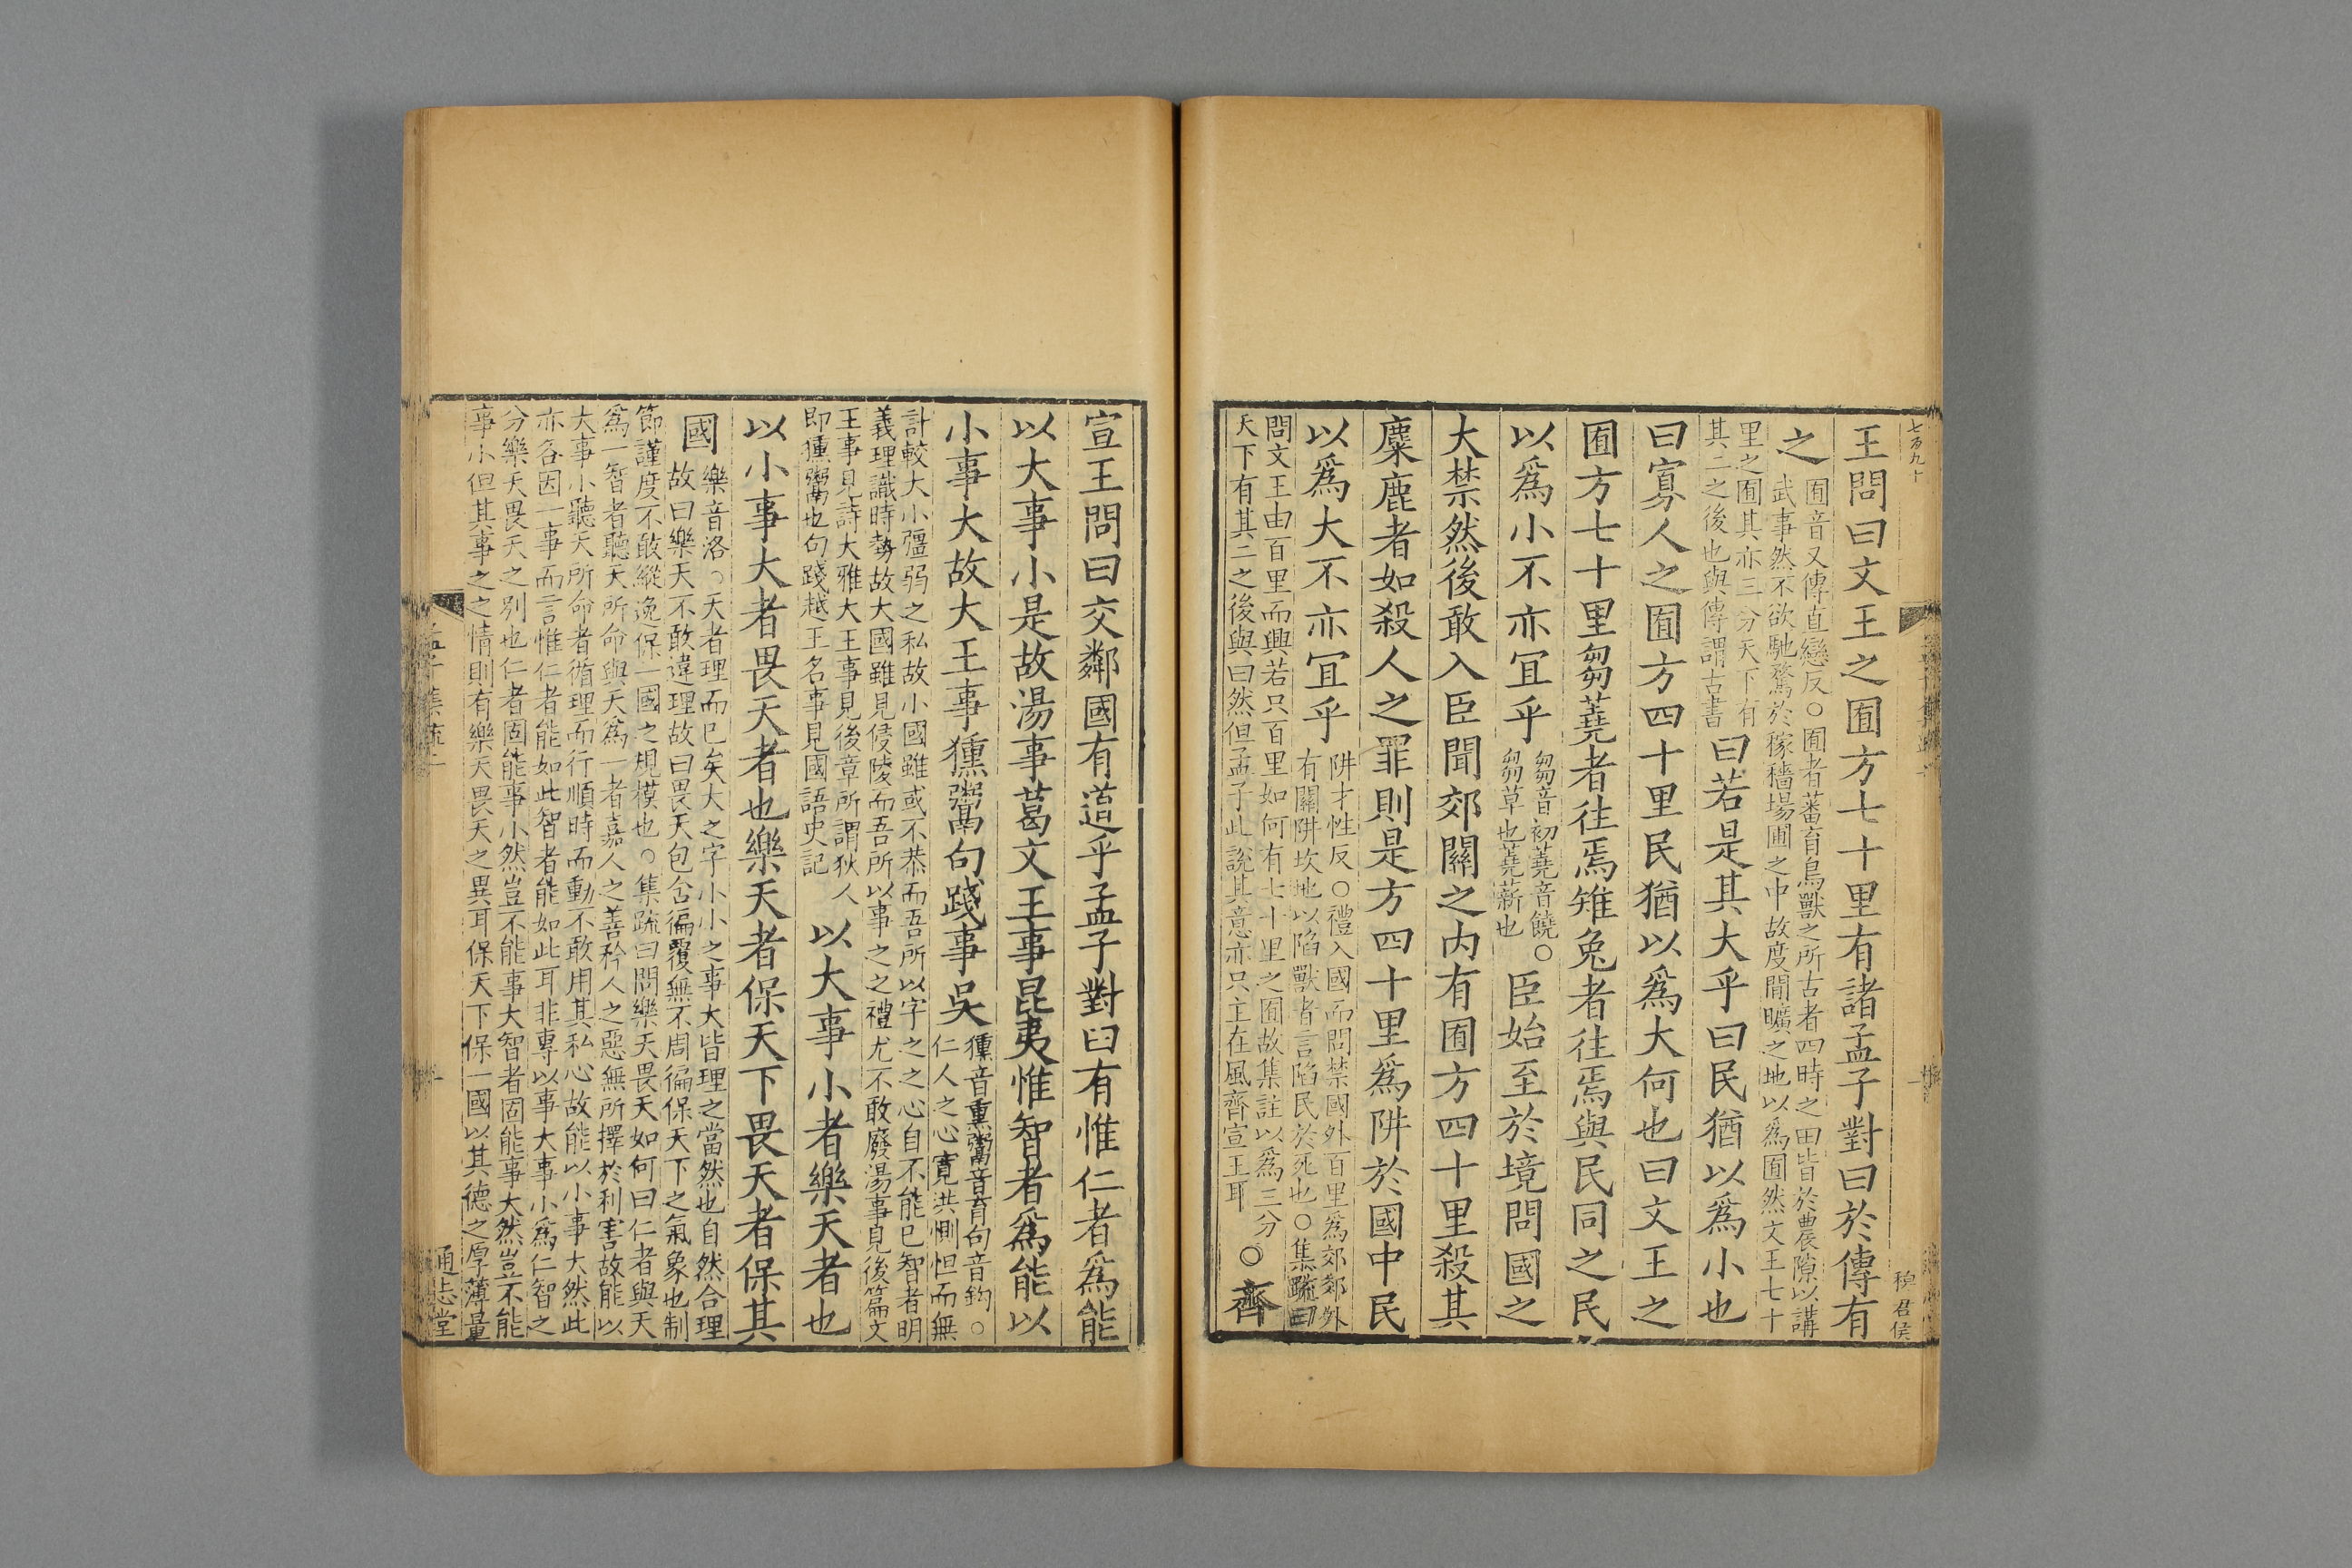 王問曰文王之囿方七十里有諸孟子對曰於傳有
之
囿音又傳直戀反○囿者蕃育鳥獸之所古者四時之田皆於農隙以講
武事然不欲馳騖於稼穡場圃之中故度閒曠之地以為囿然文王七十
里之囿其亦三分天下有
其二之後也與傳謂古書
曰若是其大乎曰民猶以爲小也
曰寡人之囿方四十里民猶以爲大何也曰文王之
囿方七十里芻蕘者往焉雉兔者往焉與民同之民
以爲小不亦宜乎
芻音初蕘音饒○
芻草也蕘薪也
臣始至於境問國之
大禁然後敢入臣聞郊關之内有囿方四十里殺其
麋鹿者如殺人之罪則是方四十里爲阱於國中民
以爲大不亦宜乎
阱才性反○禮入國而問禁國外百里爲郊郊外
有關阱坎地以陷獸者言陷民於死也○集疏曰
問文王由百里而興若只百里如何有七十里之囿故集註以爲三分
天下有其二之後與曰然但孟子此說其意亦只主在風齊宣王耳
○齊
宣王問曰交鄰國有道乎孟子對曰有惟仁者爲能
以大事小是故湯事葛文王事昆夷惟智者爲能以
小事大故大王事獯鬻句踐事吳
獯音熏鬻音育句音鉤○
仁人之心寬洪惻怛而無
計較大小彊弱之私故小國雖或不恭而吾所以字之之心自不能已智者明
義理識時勢故大國雖見侵陵而吾所以事之之禮尤不敢廢湯事見後篇文
王事見詩大雅大王事見後章所謂狄人
即獯鬻也句踐越王名事見國語史記
以大事小者樂天者也
以小事大者畏天者也樂天者保天下畏天者保其
國
樂音洛○天者理而已矣大之字小小之事大皆理之當然也自然合理
故曰樂天不敢違理故曰畏天包含徧覆無不周徧保天下之氣象也制
節謹度不敢縱逸保一國之規模也○集疏曰問樂天畏天如何曰仁者與天
爲一智者聽天所命與天爲一者嘉人之善矜人之惡無所擇於利害故能以
大事小聽天所命者循理而行順時而動不敢用其私心故能以小事大然此
亦各因一事而言惟仁者能如此智者能如此耳非專以事大事小爲仁智之
分樂天畏天之别也仁者固能事小然豈不能事大智者固能事大然豈不能
事小但其事之之情則有樂天畏天之異耳保天下保一國以其德之厚薄量
通志堂